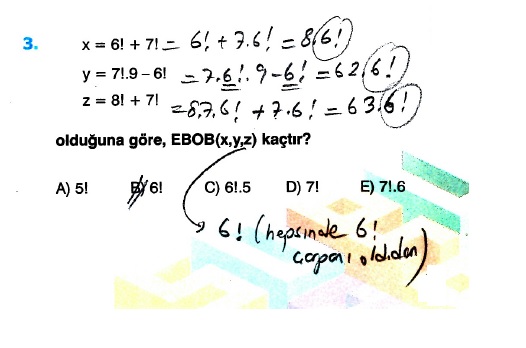 3. x = 6! + 7! = 6! + 7.6! = 8.6!
y = 7!.9 – 6! = 7.6!.9 – 6! = 62.6!
z = 8! + 7! = 8.7.6! + 7.6! = 63.6!
olduğuna göre, EBOB(x,y,z) kaçtır?
A) 5! B) 6! C) 6!.5 D) 7! E) 7!.6
6! (hepsinde 6!
çarpanı olduğundan)